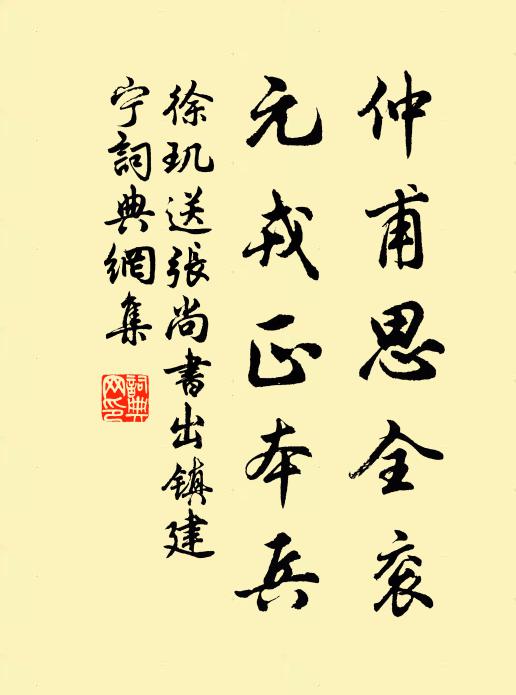 仲甫思全衮
元戎正本兵
徐玑送張尚書出鎮建
宁詞典網集
詞典
网印